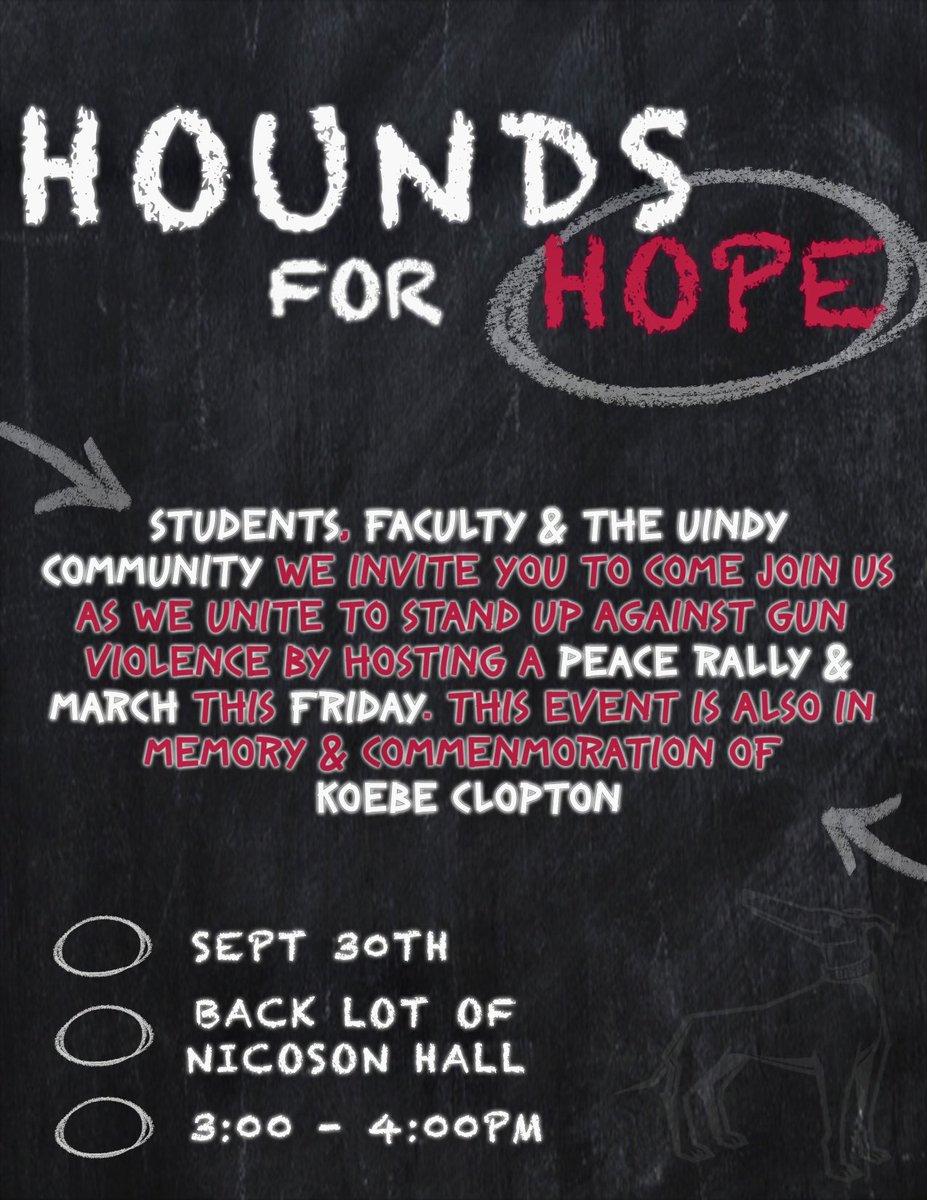 HOUNDS
FOR HOPE
STUDENTS, FACULTY & THE UINDY
COMMUNITY WE INVITE YOU TO COME JOIN US
AS WE UNITE TO STAND UP AGAINST GUN
VIOLENCE BY HOSTING A PEACE RALLY &
MARCH THIS FRIDAY. THIS EVENT IS ALSO IN
MEMORY & COMMENMORATION OF
KOEBE CLOPTON
SEPT 30TH
BACK LOT OF
NICOSON HALL
3:00 - 4:00PM